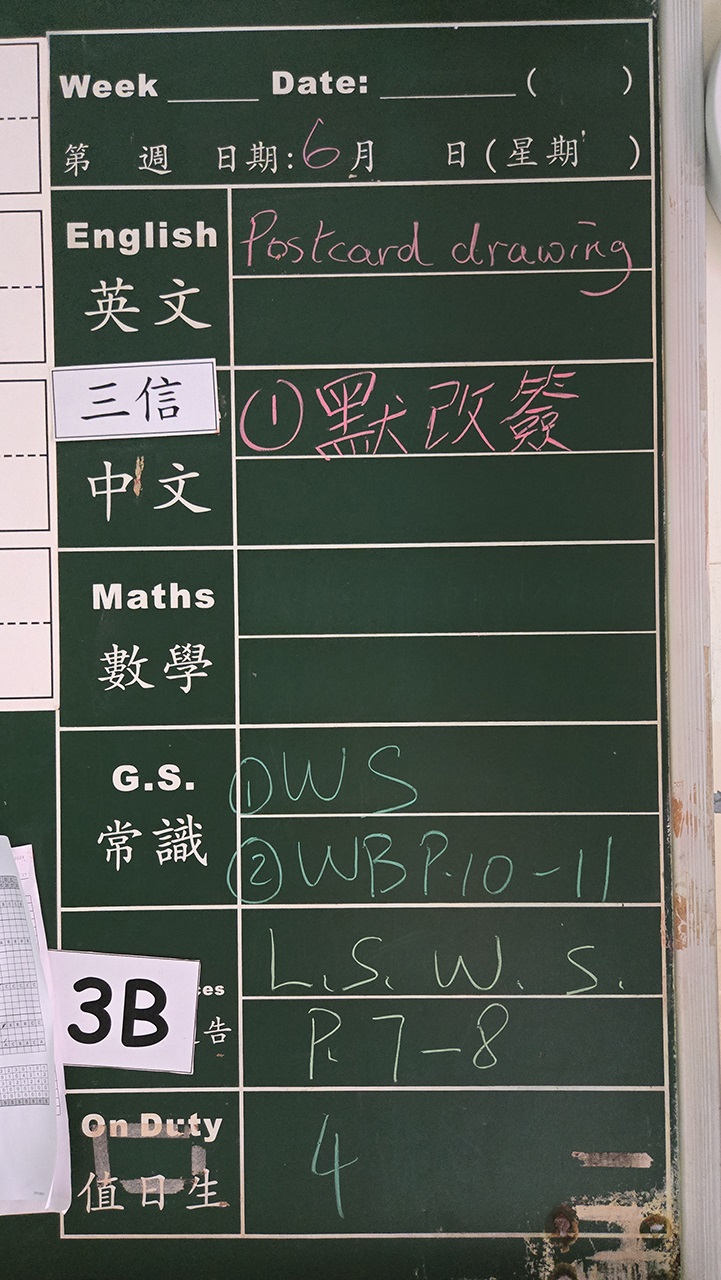 Week ____ Date: ______ ( )
第 週 日期:6月 日(星期 )
English
Postcard drawing
英文
三信
①默改簽
中文
Maths
數學
G.S.
①WS
常識
②WB P.10-11
L.S. W.S.
3B
ces
告
P. 7-8
On Duty
4
值日生